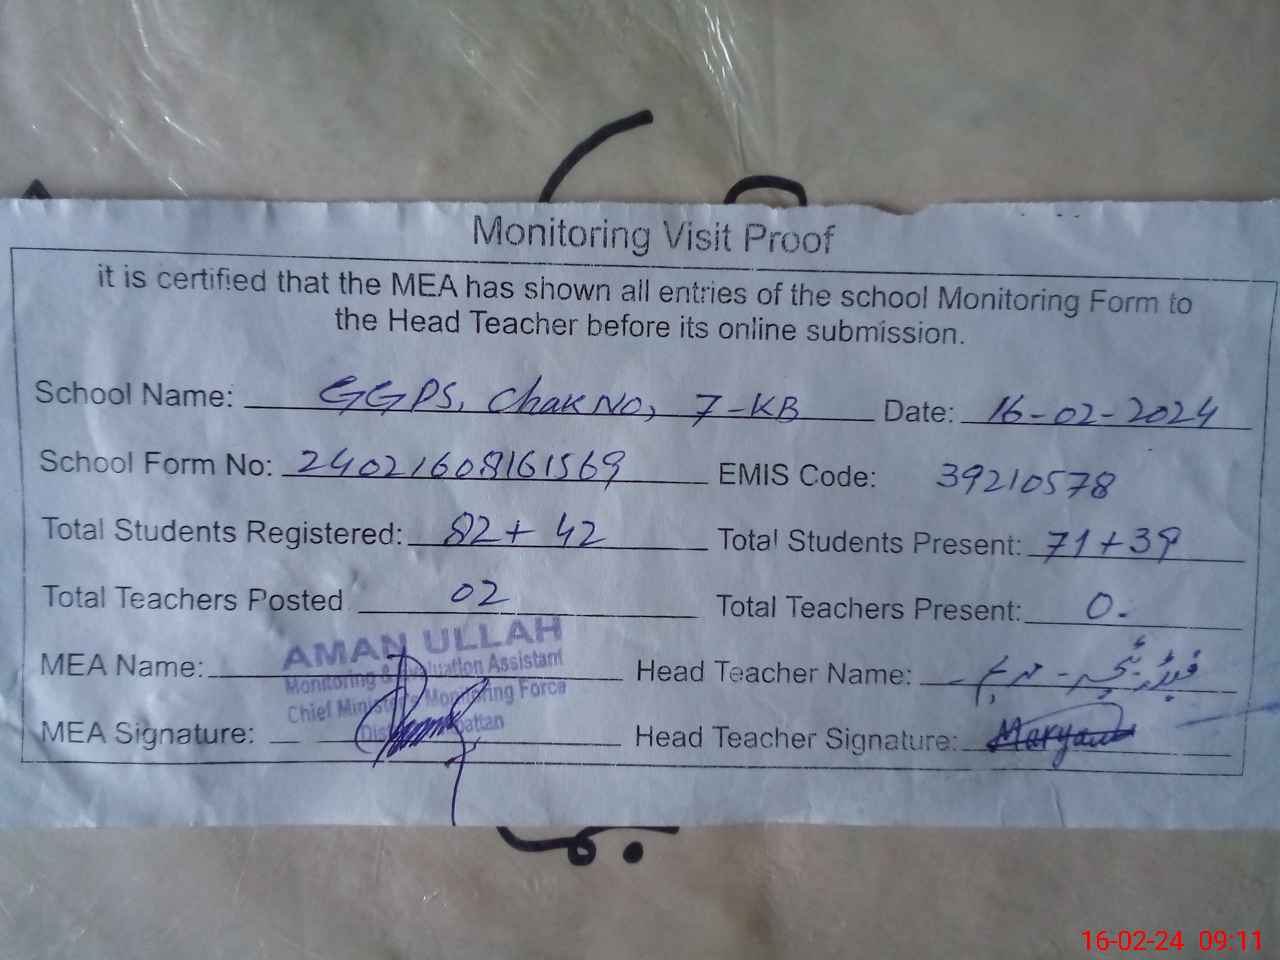 Monitoring Visit Proof
it is certified that the MEA has shown all entries of the school Monitoring Form to
the Head Teacher before its online submission.
School Name: GGPS, Chak No, 7-KB Date: 16-02-2024
School Form No: 24021608161569 EMIS Code: 39210578
Total Students Registered: 82+ 42 Total Students Present: 71+39
Total Teachers Posted 02 Total Teachers Present: 0.
AMAN ULLAH
MEA Name: Monitoring & Evaluation Assistant Head Teacher Name:
Chief Minister's Monitoring Force
MEA Signature: Head Teacher Signature: Maryam
16-02-24 09:11